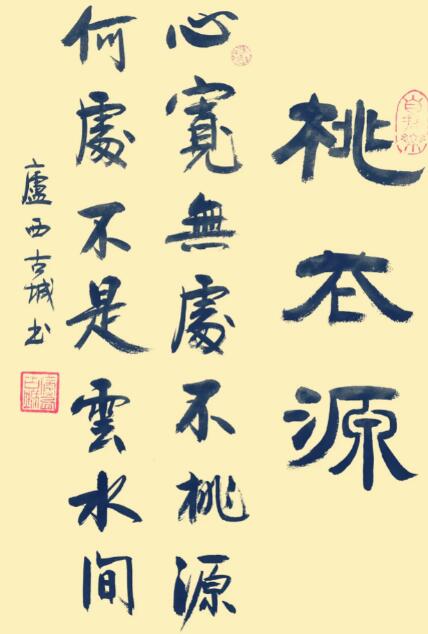 桃衣源
心寬無處不桃源
何處不是雲水間
廬西古城书